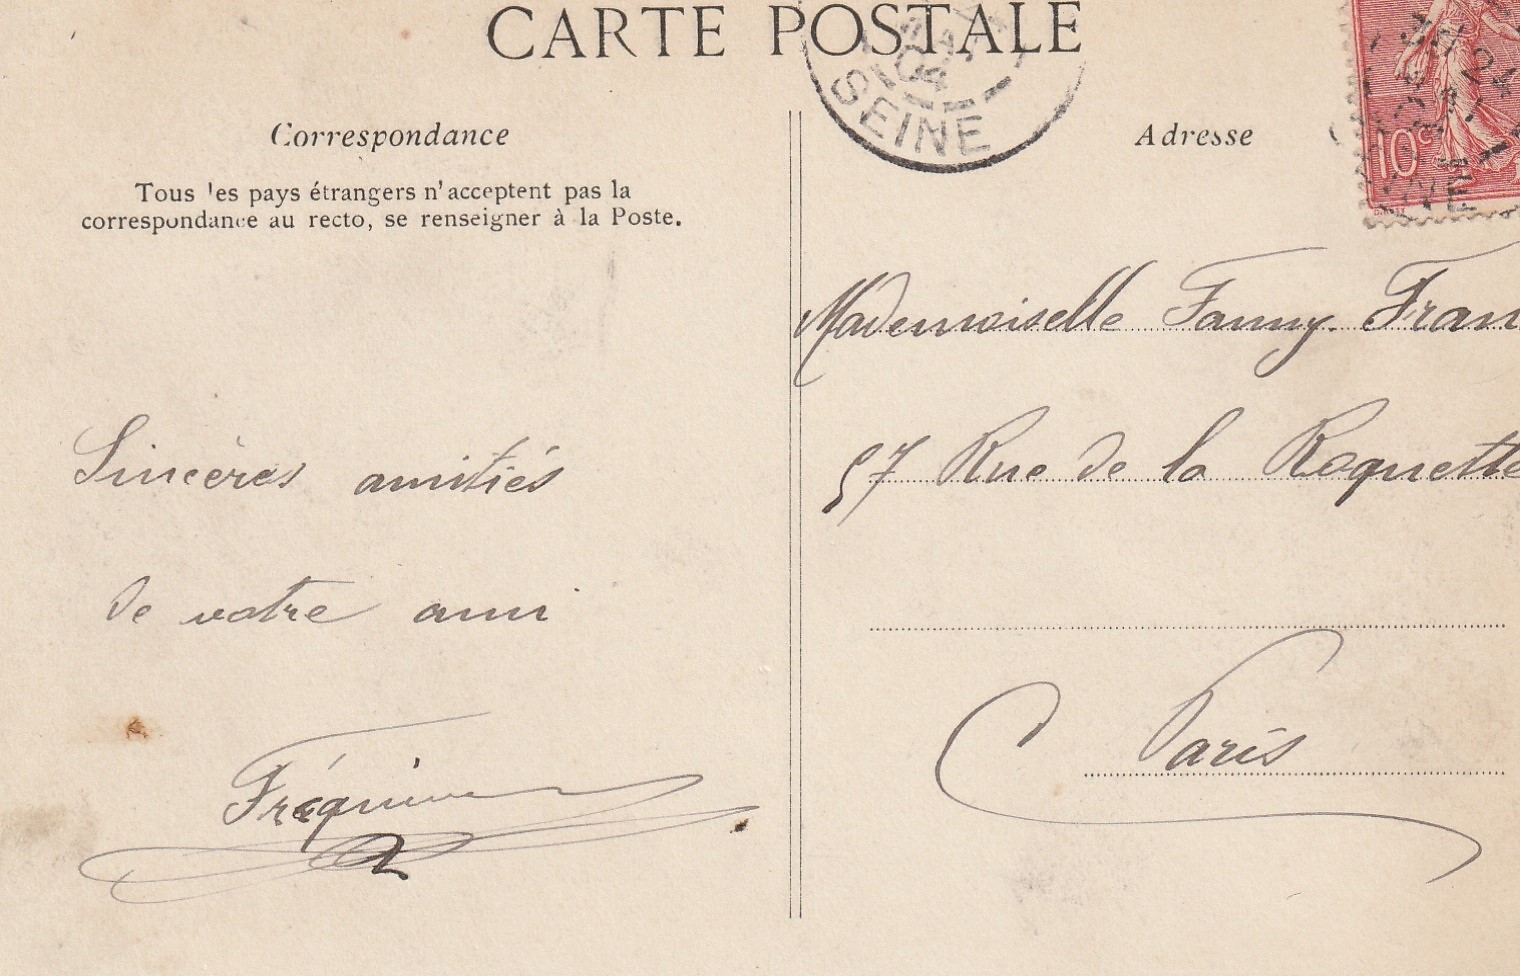 CARTE POSTALE
04
SEINE
10c
Correspondance
Tous 'es pays étrangers n'acceptent pas la
correspondance au recto, se renseigner à la Poste.
Sincères amitiés
de votre ami
Adresse
Mademoiselle Fanny Fran
57 Rue de la Roquette
Paris